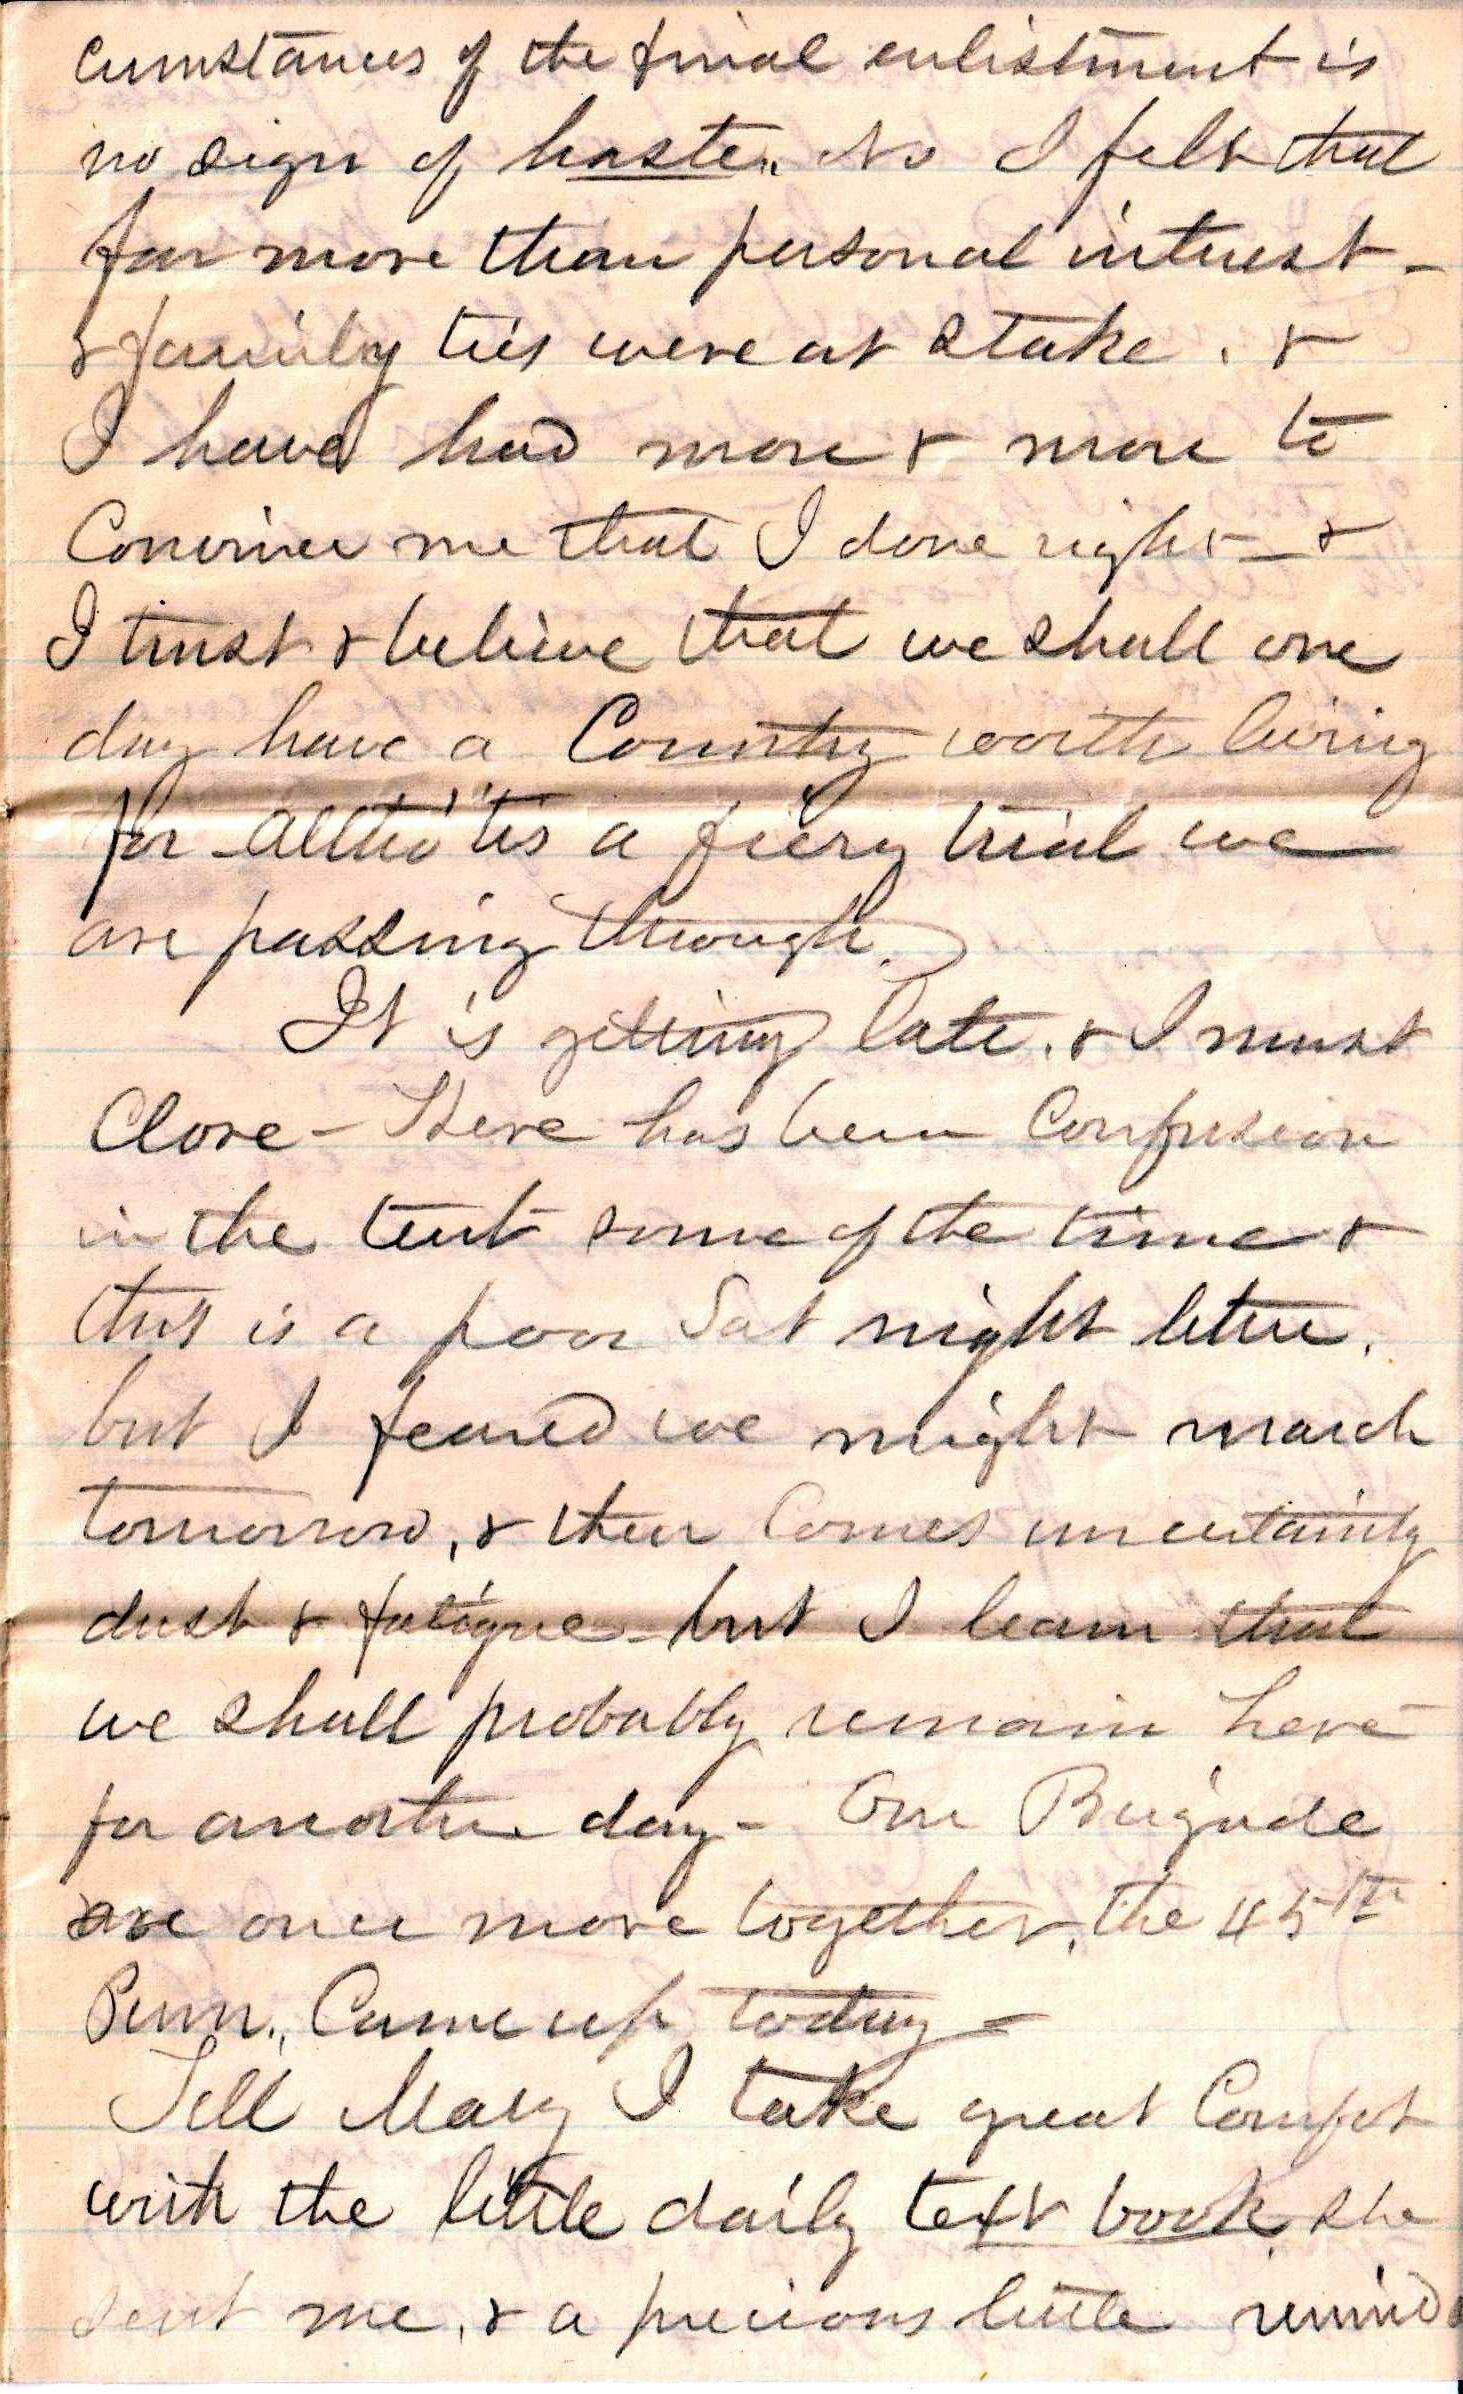 cumstances of the final enlistment is
no sign of haste. No I felt that
far more than personal interest -
& family ties were at stake. &
I have had more & more to
Convince me that I done right - &
I trust & believe that we shall one
day have a Country worth living
for - altho' 'tis a fiery trial we
are passing through.
It is getting late. & I must
Close - There has been Confusion
in the tent some of the time &
this is a poor Sat night letter.
but I feared we might march
tomorrow, & then Comes uncertainty
dust & fatigue - but I learn that
we shall probably remain here
for another day - Our Brigade
are once more together, the 45th
Penn., Came up today -
Tell Mary I take great Comfort
with the little daily text book she
sent me, & a precious little remind